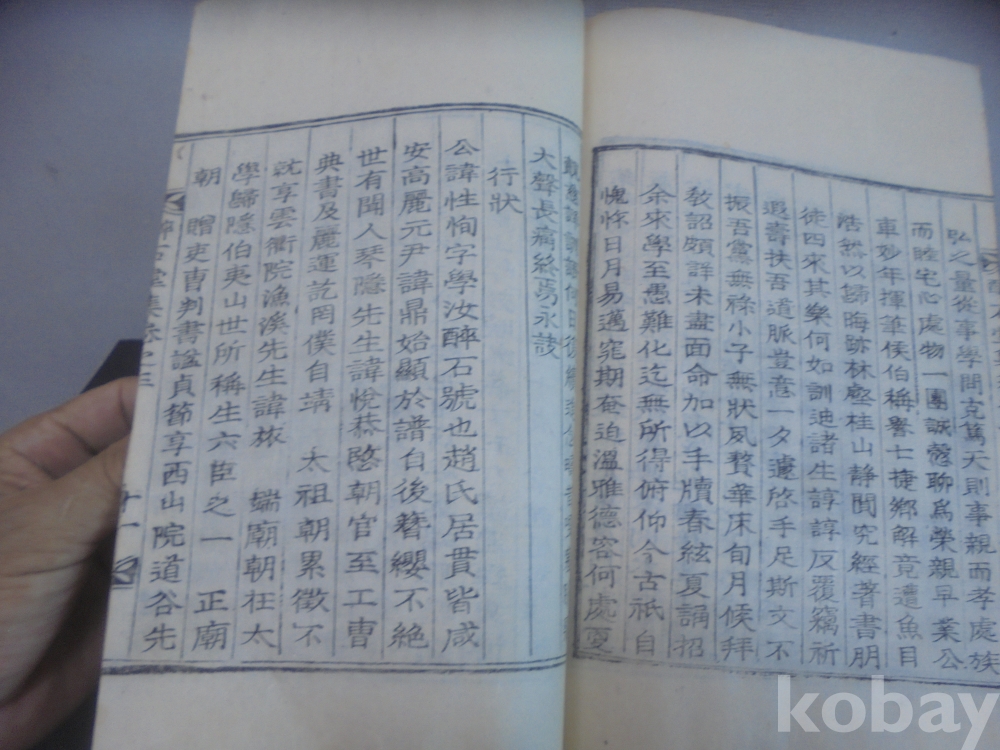 弘之量從事學問克篤天則事親而孝處族
而睦宅心處物一團誠慤聊爲榮親早業公
車妙年揮筆侯伯稱譽七捷鄕解竟遺魚目
浩然以歸晦跡林壑桂山静閒究經著書朋
徒四來其樂何如訓迪諸生諄諄反覆竊祈
遐壽扶吾道脈豈意一夕遽啓手足斯文不
振吾黨無祿小子無狀夙贅華床旬月候拜
敎詔頗詳未盡面命加以手牘春絃夏誦招
余來學至愚難化迄無所得俯仰今古祇自
愧怍日月易邁窀期奄迫溫雅德容何處
大聲長痛終焉永訣
行狀
公諱性恂字學汝醉石號也趙氏居貫皆咸
安高麗元尹諱鼎始顯於譜自後簪纓不絶
世有聞人琴隱先生諱悅恭愍朝官至工曺
典書及麗運訖罔僕自靖 太祖朝累徵不
就享雲衢院漁溪先生諱旅 端廟朝在太
學歸隱伯夷山世所稱生六臣之一 正廟
朝 贈吏曺判書謚貞節享西山院道谷先
十一
kobay